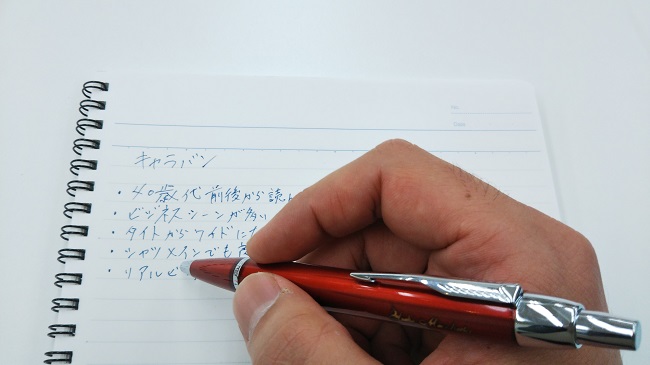 No.
Date
キャラバン
・40歳代前後から読
・ビジネスシーンが多い
・タイトからワイドに
・シャツメインでも
・リアルビ